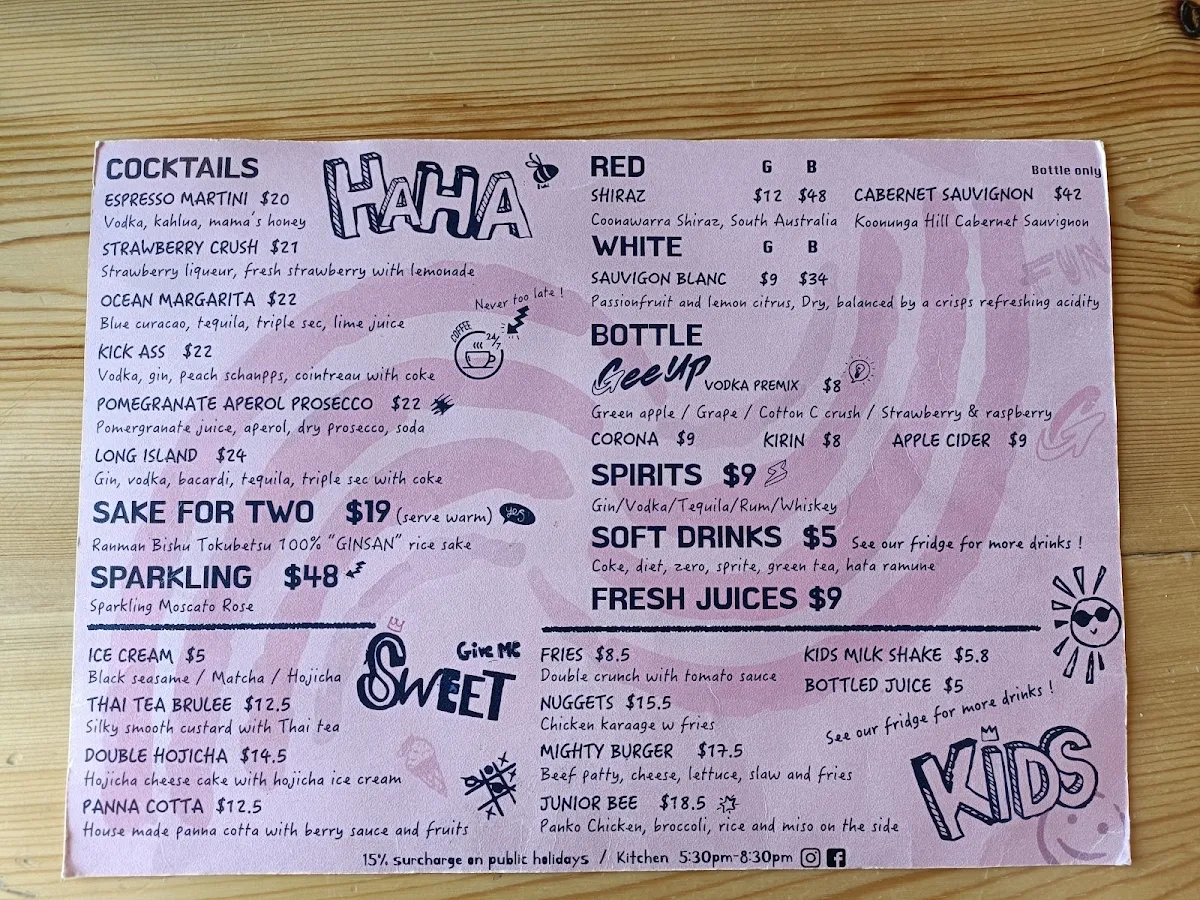 COCKTAILS
HAHA
ESPRESSO MARTINI $20
Vodka, kahlua, mama's honey
STRAWBERRY CRUSH $21
Strawberry liqueur, fresh strawberry with lemonade
OCEAN MARGARITA $22
Blue curacao, tequila, triple sec, lime juice
Never too late !
COFFEE 24/7
KICK ASS $22
Vodka, gin, peach schanpps, cointreau with coke
POMEGRANATE APEROL PROSECCO $22
Pomergranate juice, aperol, dry prosecco, soda
LONG ISLAND $24
Gin, vodka, bacardi, tequila, triple sec with coke
SAKE FOR TWO $19 (serve warm) yes
Ranman Bishu Tokubetsu 100% "GINSAN" rice sake
SPARKLING $48
Sparkling Moscato Rose
RED G B
Bottle only
SHIRAZ $12 $48
Coonawarra Shiraz, South Australia
CABERNET SAUVIGNON $42
Koonunga Hill Cabernet Sauvignon
WHITE G B
FUN
SAUVIGON BLANC $9 $34
Passionfruit and lemon citrus, Dry, balanced by a crisps refreshing acidity
BOTTLE
Gee UP VODKA PREMIX $8
Green apple / Grape / Cotton C crush / Strawberry & raspberry
CORONA $9 KIRIN $8 APPLE CIDER $9
G
SPIRITS $9
Gin/Vodka/Tequila/Rum/Whiskey
SOFT DRINKS $5 See our fridge for more drinks !
Coke, diet, zero, sprite, green tea, hata ramune
FRESH JUICES $9
Give Me
SWEET
ICE CREAM $5
Black seasame / Matcha / Hojicha
THAI TEA BRULEE $12.5
Silky smooth custard with Thai tea
DOUBLE HOJICHA $14.5
Hojicha cheese cake with hojicha ice cream
PANNA COTTA $12.5
House made panna cotta with berry sauce and fruits
FRIES $8.5
Double crunch with tomato sauce
NUGGETS $15.5
Chicken karaage w fries
MIGHTY BURGER $17.5
Beef patty, cheese, lettuce, slaw and fries
JUNIOR BEE $18.5
Panko Chicken, broccoli, rice and miso on the side
KIDS MILK SHAKE $5.8
BOTTLED JUICE $5
See our fridge for more drinks !
KiDS
15% surcharge on public holidays / Kitchen 5:30pm-8:30pm